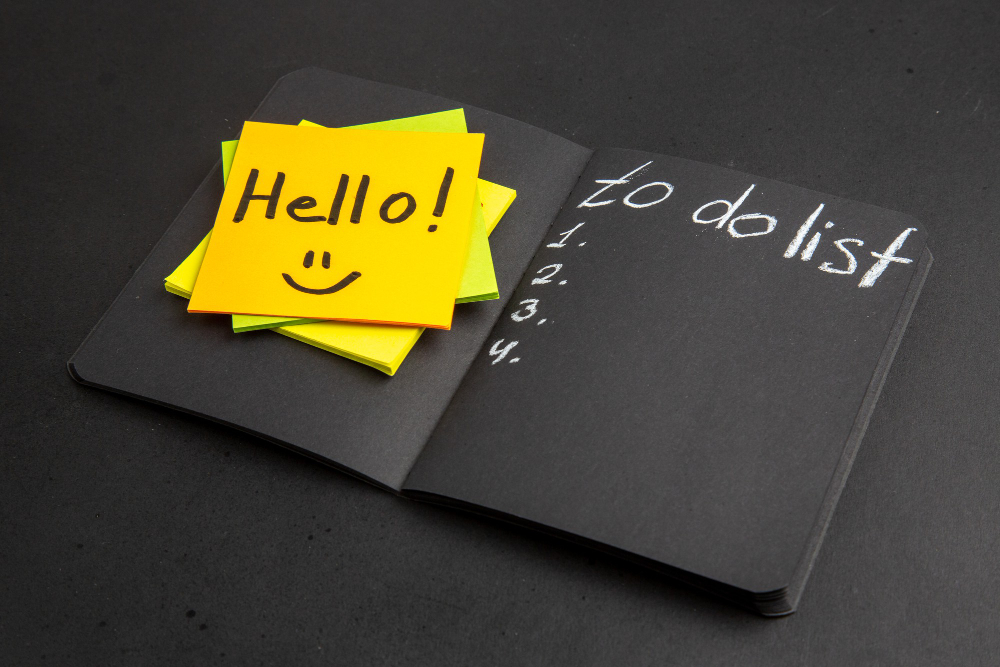 Hello!
to do list
1.
2.
3.
4.